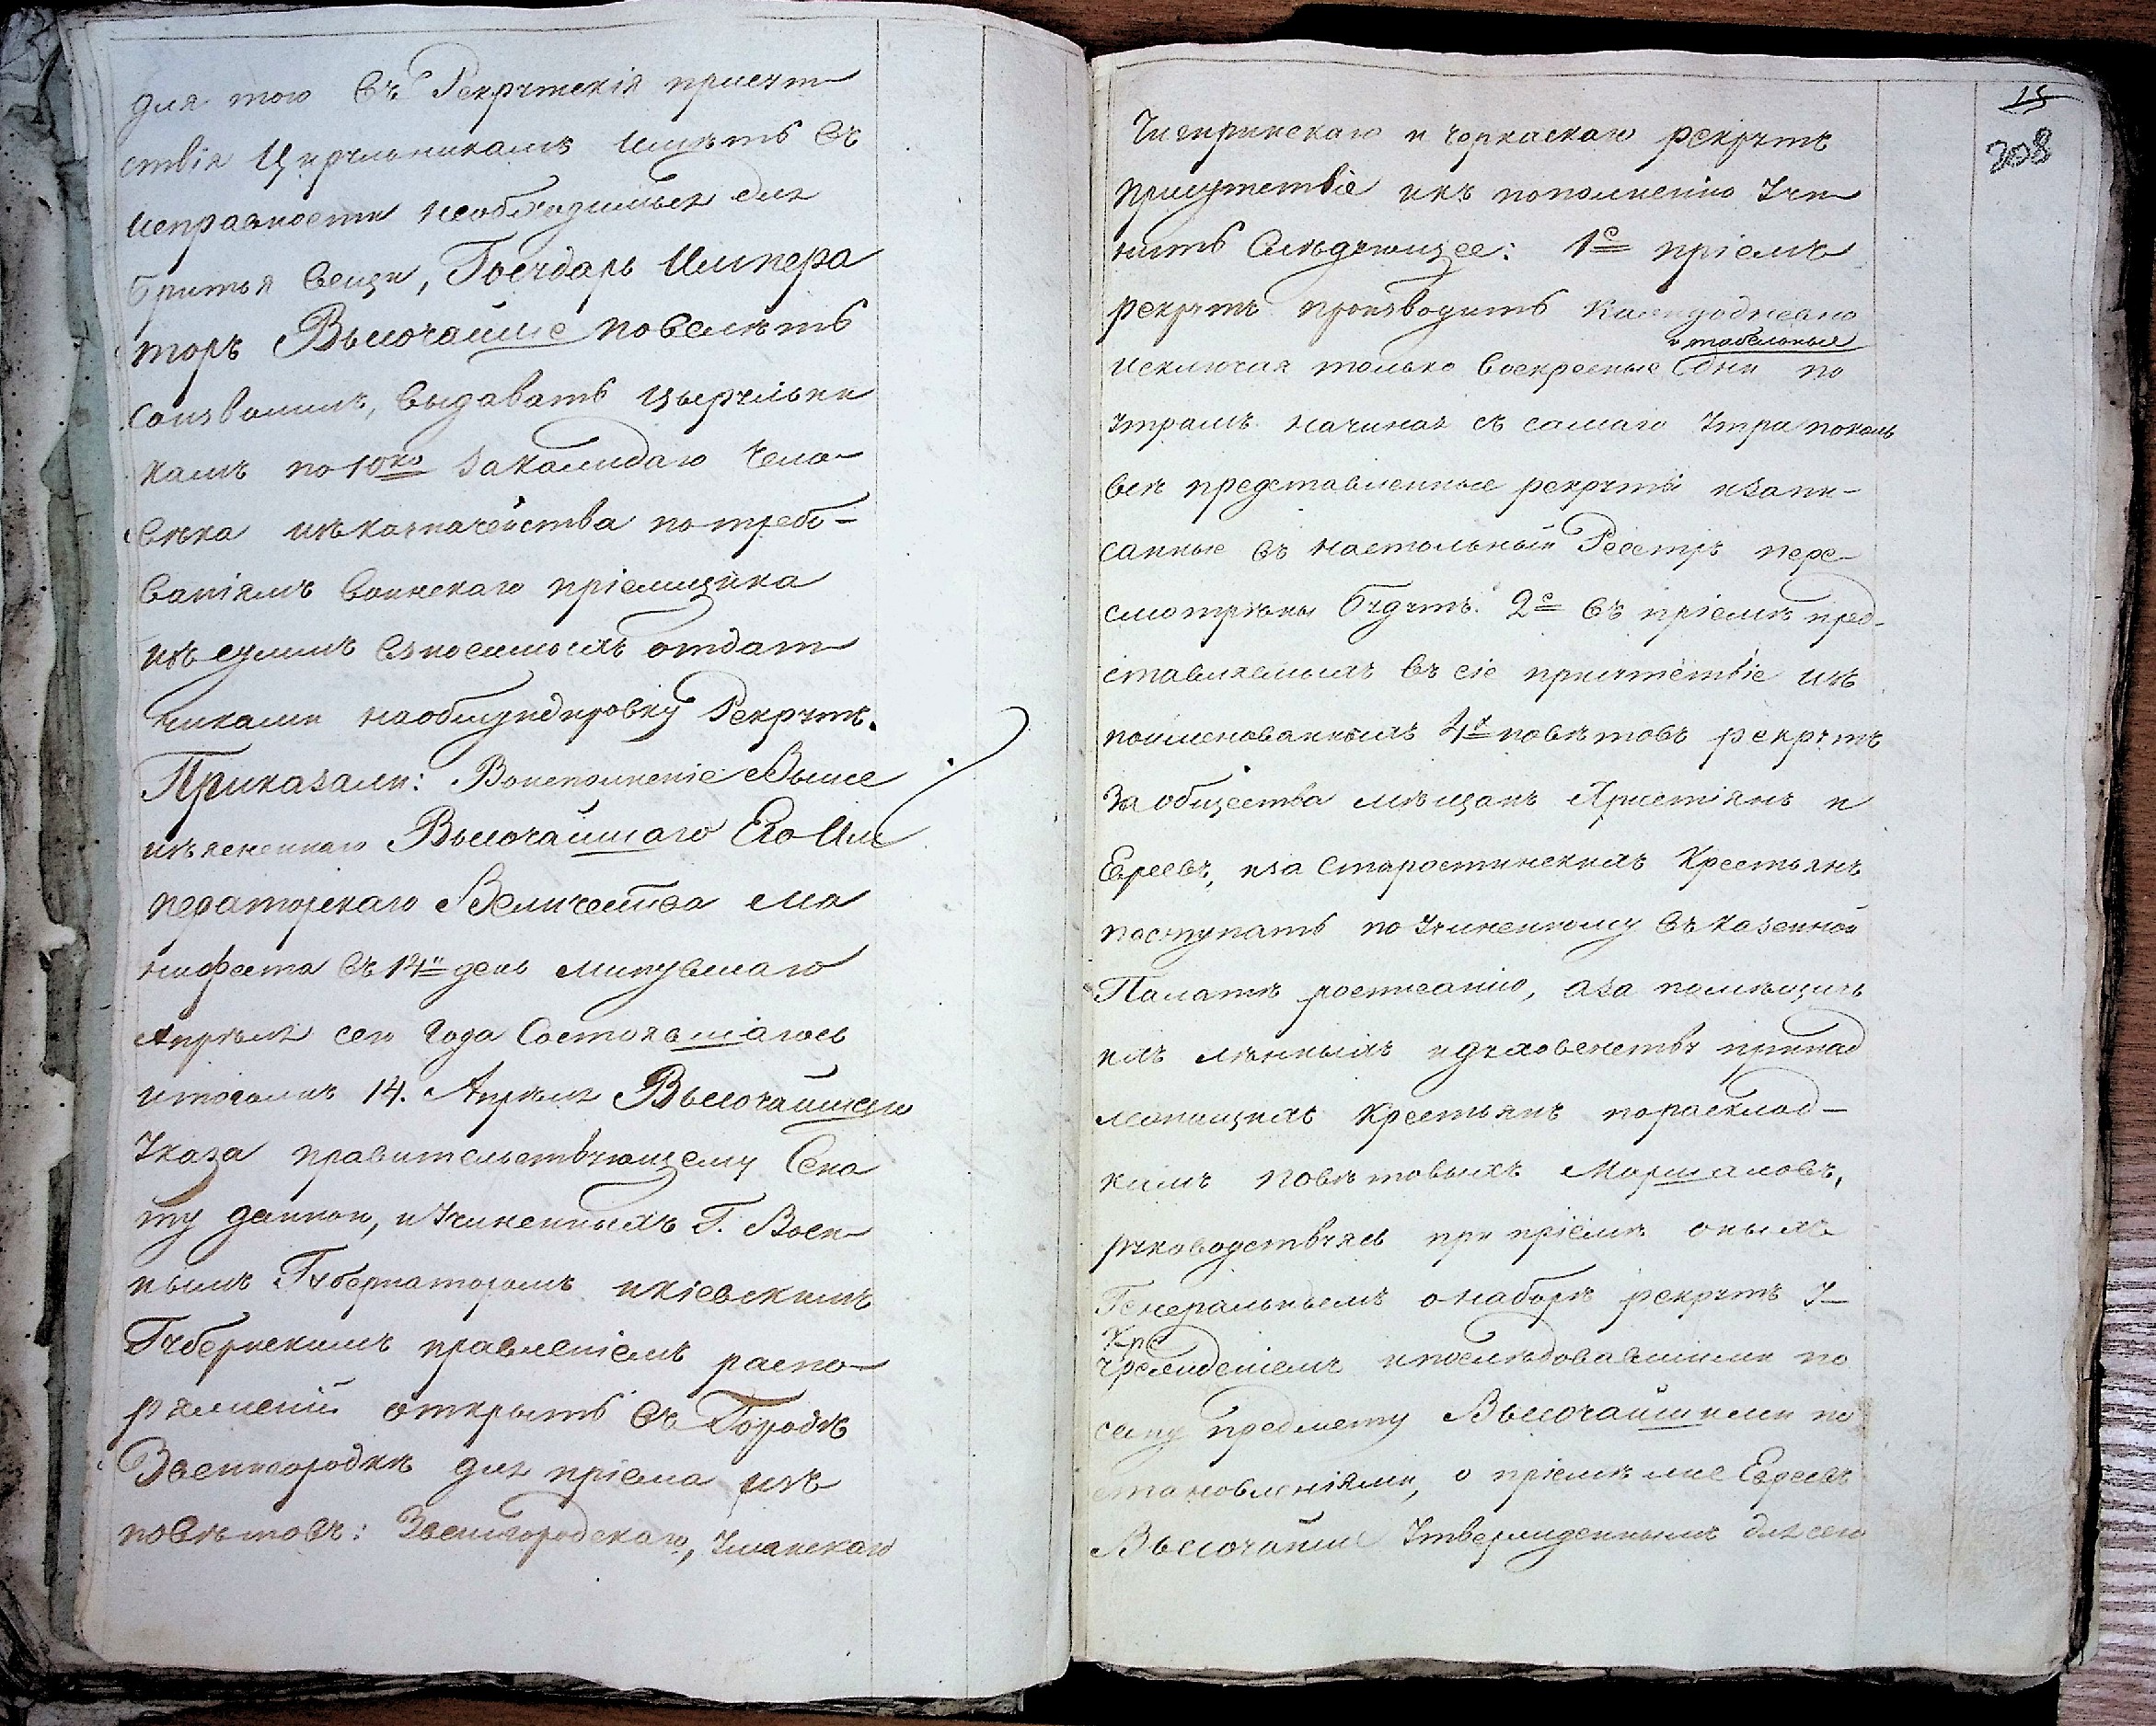 для того въ Рекрутскія присут
ствія Цирульникамъ имѣть въ
исправности необходимыя для
бритья вещи, Государь Импера
торъ Высочайше повелѣть
соизволилъ, выдавать цырульни
камъ по 10ко за каждаго чело-
вѣка изъ казначейства по требо-
ваніямъ воинскаго пріемщика
изъ суммъ взносимыхъ отдат
чиками на обмундировку Рекрутъ.
Приказали: Во исполненіе выше
изъясненнаго Высочайшаго Его Им
ператорскаго Величества Ма
нифеста въ 14й день минувшаго
Апрѣля сего года Состоявшагось
и тогожъ 14. Апрѣля Высочайшаго
Указа правительствующему Сена
ту даннои, и учиненныхъ Г. Воен
нымъ Губернаторомъ и кіевскимъ
Губернскимъ правленіемъ распо-
ряженій открыть въ Городѣ
Звенигородкѣ для пріема изъ
повѣтовъ: Звенигородскаго, Уманскаго
15
208
Чигиринскаго и черкаскаго рекрутъ
присутствіе и къ пополненію Учи
нить Слѣдующее: 1е пріемъ
рекрутъ производить каждодневно
и табельные
исключая только воскресные дни по
утрамъ начиная съ самаго Утра поколь
всѣ представленные рекруты и запи-
санные въ настольный Реестръ пере-
смотрѣны будутъ. 2е въ пріемѣ пред-
ставляемыхъ въ сіе присутствіе изъ
поименованныхъ 4х повѣтовъ рекрутъ
За общества мѣщанъ Христіянъ и
Евреевъ, и за Старостинскихъ Крестьянъ
поступать по Учиненному въ казенной
Палатѣ росписанію, а за помѣщичь
ихъ лѣнныхъ и духовенству принад
лежащихъ Крестьянъ по расклад-
кимъ повѣтовыхъ Маршаловъ,
руководствуясь при пріемѣ оныхъ
Генеральнымъ о наборѣ рекрутъ У-
Учре
чреждѣніемъ и послѣдовавшими по
сему предмету Высочайшими по
становленіями, о пріемѣ же Евреевъ
Высочайше Утвержденнымъ для сего